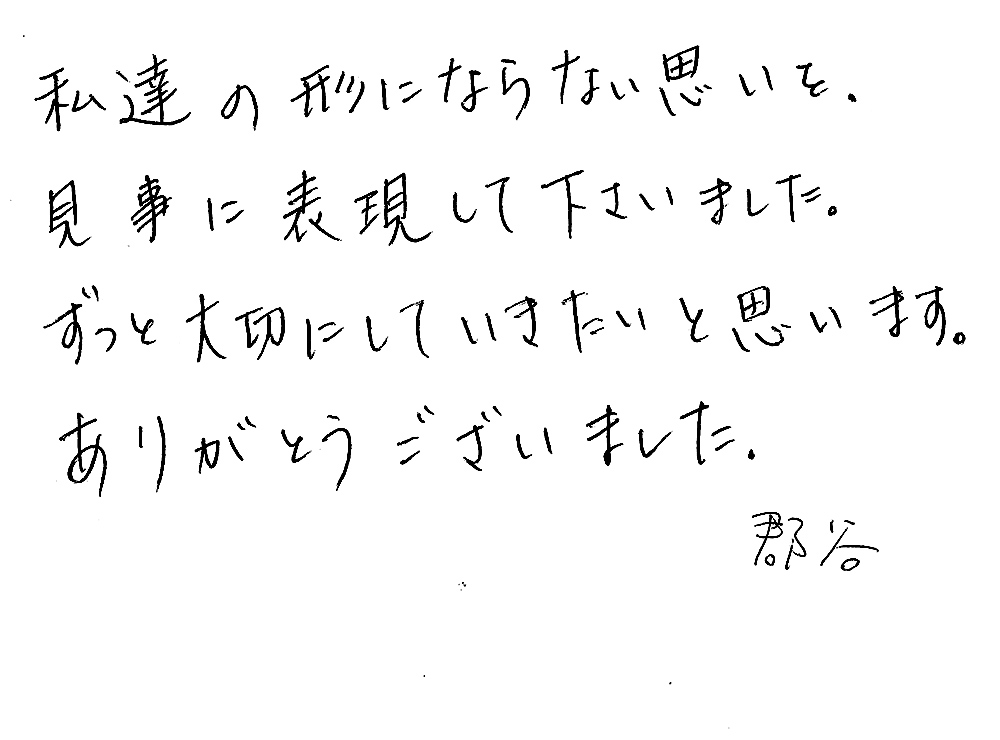 私達の形にならない思いを、
見事に表現して下さいました。
ずっと大切にしていきたいと思います。
ありがとうございました。
郡谷